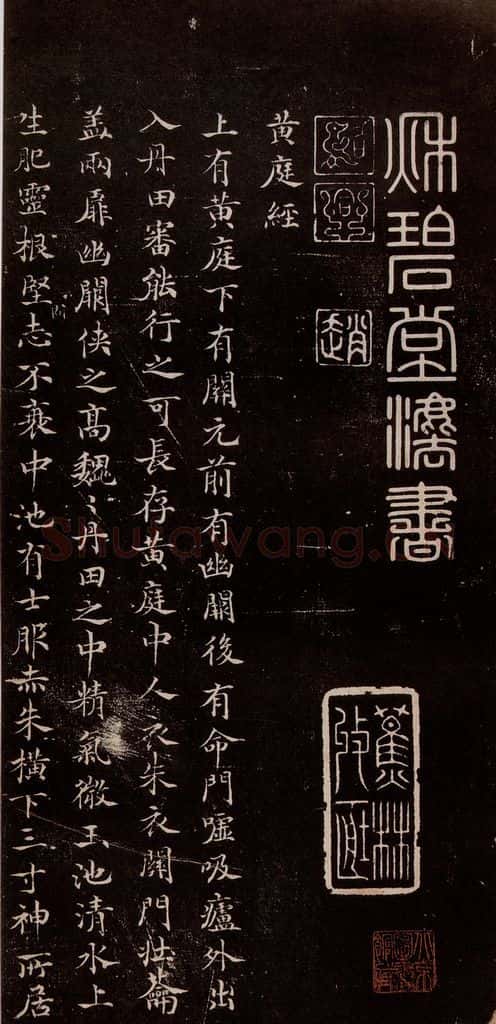 秋碧堂灋書
趙
蕉林
黃庭經
上有黃庭下有關元前有幽闕後有命門噓吸廬外出
入丹田審能行之可長存黃庭中人衣朱衣關門壯蘥
盖兩扉幽闕俠之高魏〻丹田之中精氣微玉池清水上
生肥靈根堅志不衰中池有士服赤朱橫下三寸神所居
Shufawang.cn